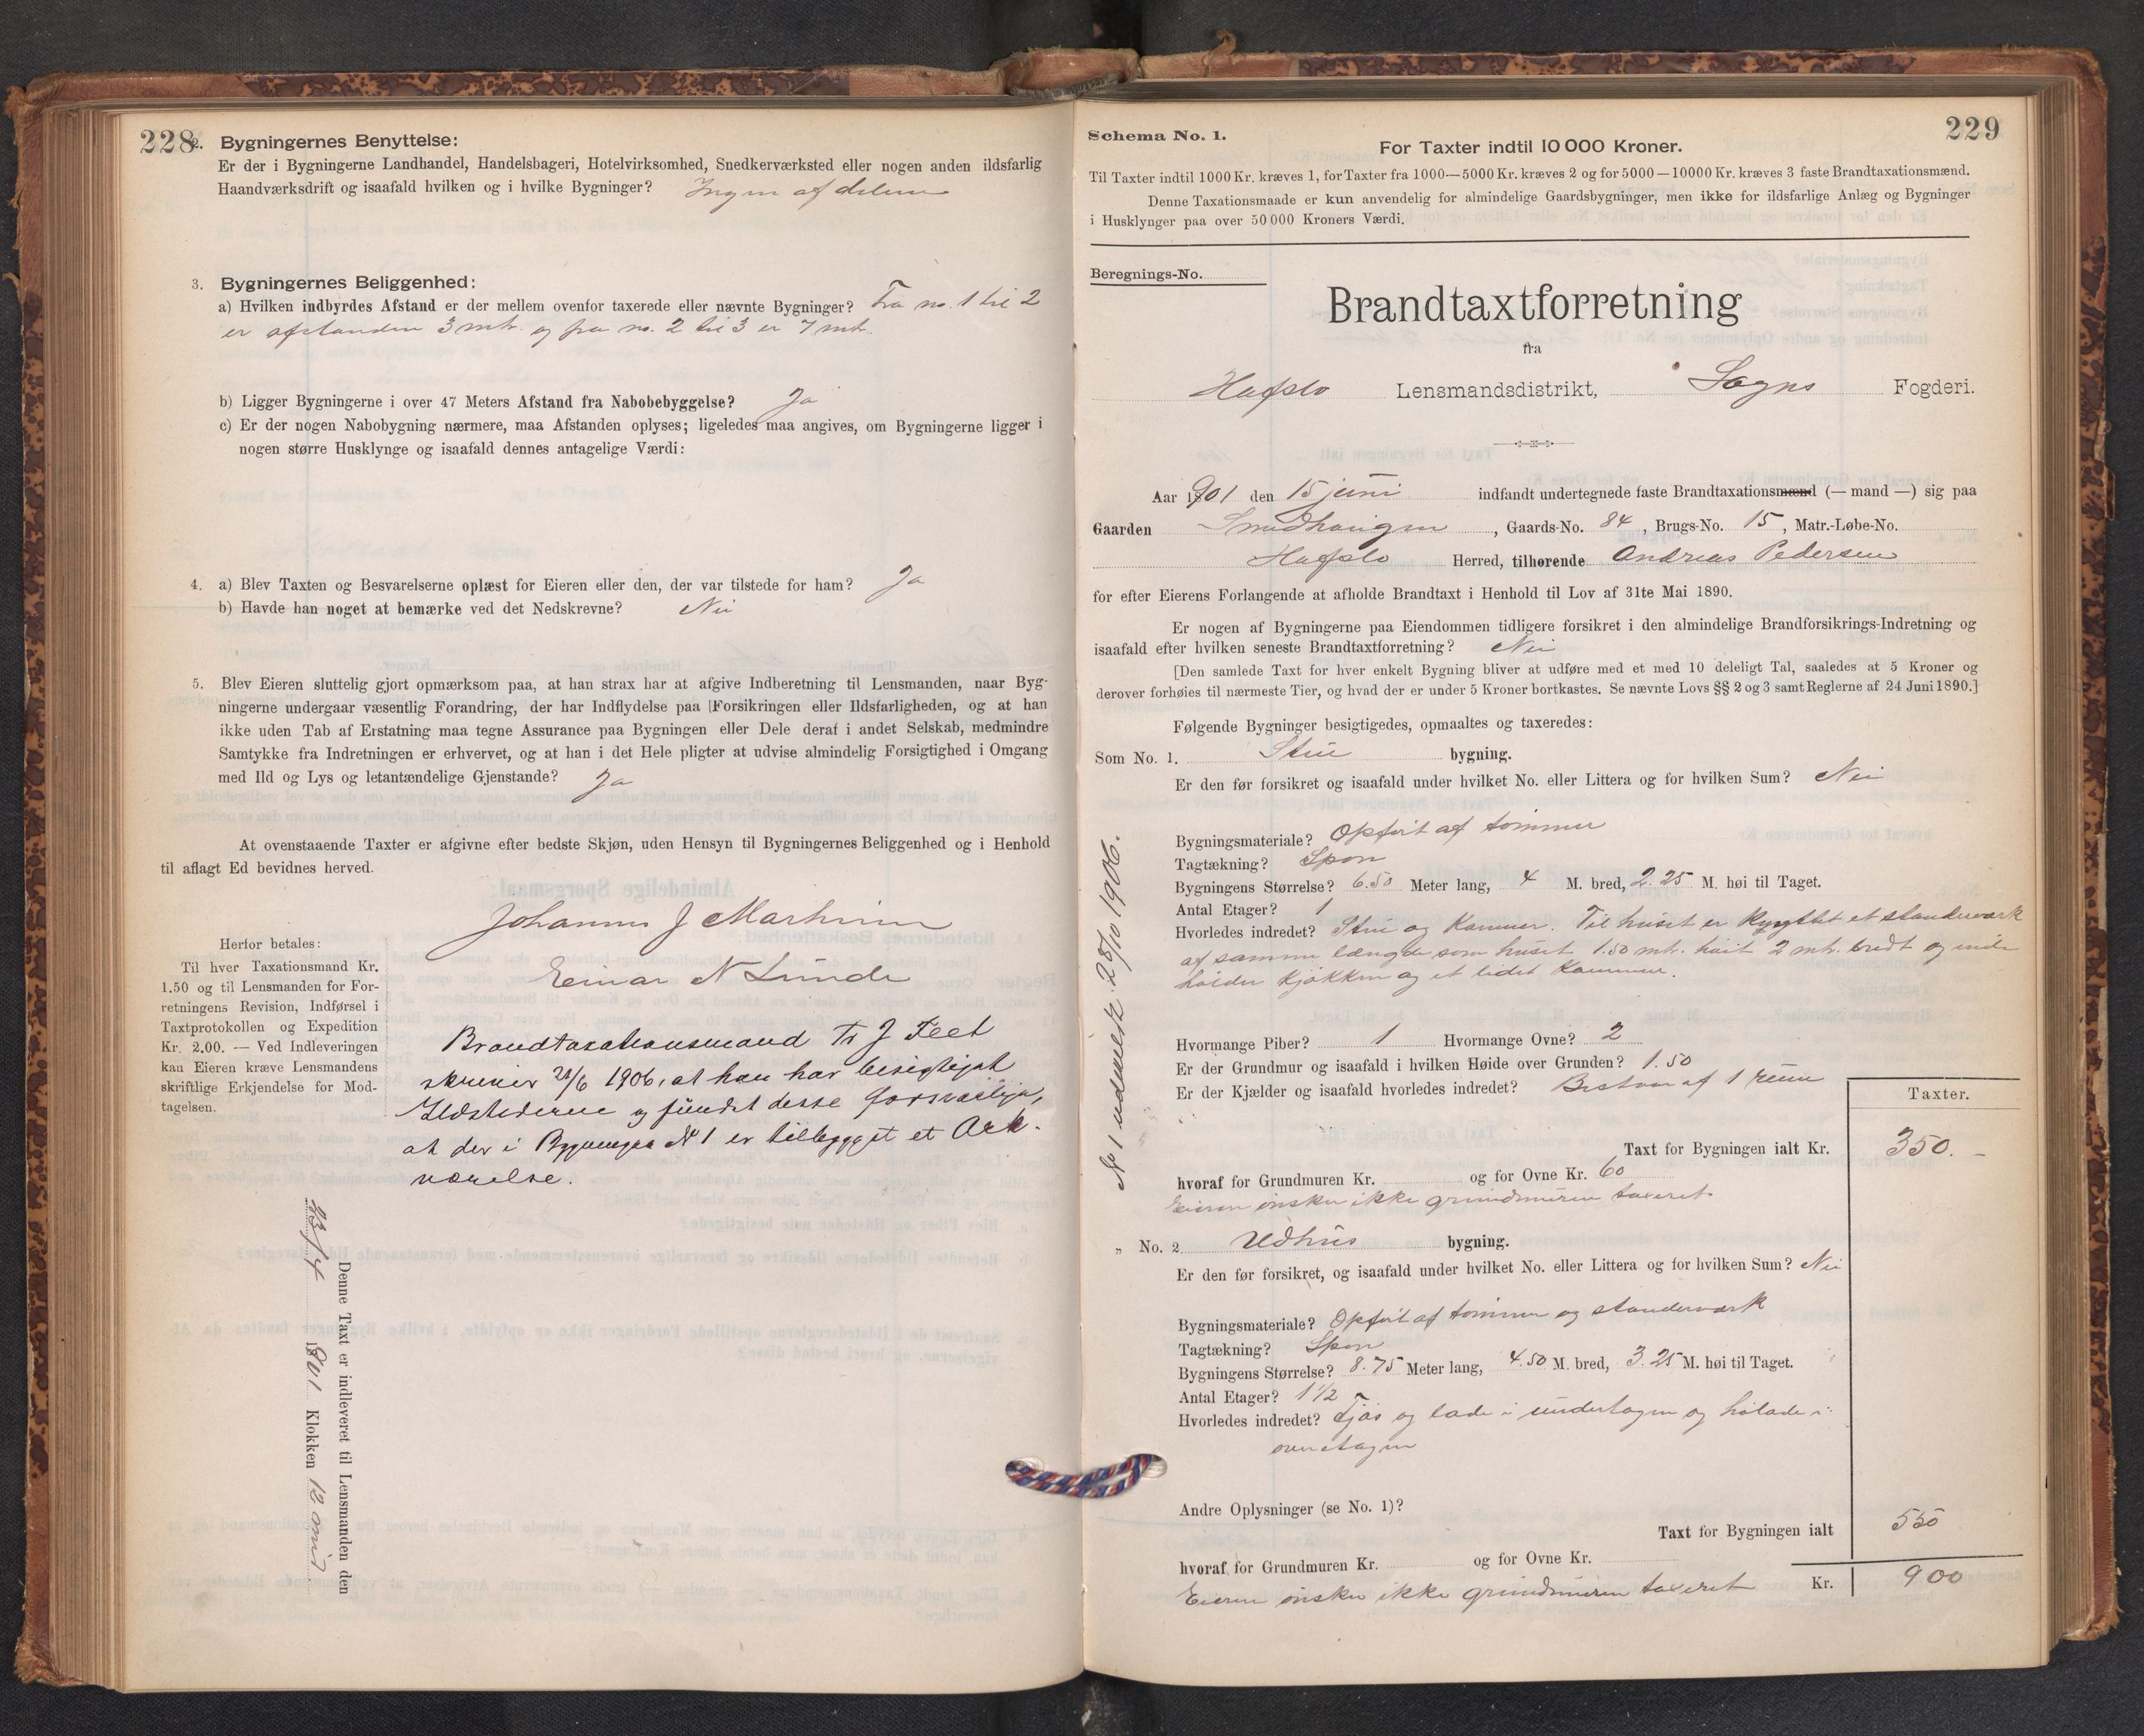 228
2. Bygningernes Benyttelse:
Er der i Bygningerne Landhandel, Handelsbageri, Hotelvirksomhed, Snedkerværksted eller nogen anden ildsfarlig
Haandværksdrift og isaafald hvilken og i hvilke Bygninger? Ingen af delene
3. Bygningernes Beliggenhed:
a) Hvilken indbyrdes Afstand er der mellem ovenfor taxerede eller nævnte Bygninger? Fra no. 1 til 2
er afstanden 3 mtr. og fra no. 2 til 3 er 7 mtr.
b) Ligger Bygningerne i over 47 Meters Afstand fra Nabobebyggelse? Ja
c) Er der nogen Nabobygning nærmere, maa Afstanden oplyses; ligeledes maa angives, om Bygningerne ligger i
nogen større Husklynge og isaafald dennes antagelige Værdi:
4. a) Blev Taxten og Besvarelserne oplæst for Eieren eller den, der var tilstede for ham? Ja
b) Havde han noget at bemærke ved det Nedskrevne? Nei
5. Blev Eieren sluttelig gjort opmærksom paa, at han strax har at afgive Indberetning til Lensmanden, naar Byg-
ningerne undergaar væsentlig Forandring, der har Indflydelse paa [Forsikringen eller Ildsfarligheden, og at han
ikke uden Tab af Erstatning maa tegne Assurance paa Bygningen eller Dele deraf i andet Selskab, medmindre
Samtykke fra Indretningen er erhvervet, og at han i det Hele pligter at udvise almindelig Forsigtighed i Omgang
med Ild og Lys og letantændelige Gjenstande? Ja
At ovenstaaende Taxter er afgivne efter bedste Skjøn, uden Hensyn til Bygningernes Beliggenhed og i Henhold
til aflagt Ed bevidnes herved.
Johannes J Marheim
Einar N Lunde
Herfor betales:
Til hver Taxationsmand Kr.
1.50 og til Lensmanden for For-
retningens Revision, Indførsel i
Taxtprotokollen og Expedition
Kr. 2.00. — Ved Indleveringen
kan Eieren kræve Lensmandens
skriftlige Erkjendelse for Mod-
tagelsen.
Brandtaxationsmand J Feet
skriver 1906, at han har besigtiget
Ildstederne og fundet desse forsvarlige,
at der i Bygningen No 1 er tilbygget et Ark-
værelse.
Denne Taxt er indleveret til Lensmanden den
23/4 1901 Klokken 12 mid
229
Schema No. 1.
For Taxter indtil 10 000 Kroner.
Til Taxter indtil 1000 Kr. kræves 1, for Taxter fra 1000—5000 Kr. kræves 2 og for 5000—10000 Kr. kræves 3 faste Brandtaxationsmænd.
Denne Taxationsmaade er kun anvendelig for almindelige Gaardsbygninger, men ikke for ildsfarlige Anlæg og Bygninger
i Husklynger paa over 50 000 Kroners Værdi.
Beregnings-No.
Brandtaxtforretning
fra
Hafslo Lensmandsdistrikt, Sogns Fogderi.
Aar 1901 den 15 juni indfandt undertegnede faste Brandtaxationsmænd (— mand —) sig paa
Gaarden Smedhaugen, Gaards-No. 84, Brugs-No. 15, Matr.-Løbe-No.
Hafslo Herred, tilhørende Andreas Pedersen
for efter Eierens Forlangende at afholde Brandtaxt i Henhold til Lov af 31te Mai 1890.
Er nogen af Bygningerne paa Eiendommen tidligere forsikret i den almindelige Brandforsikrings-Indretning og
isaafald efter hvilken seneste Brandtaxtforretning? Nei
[Den samlede Taxt for hver enkelt Bygning bliver at udføre med et med 10 deleligt Tal, saaledes at 5 Kroner og
derover forhøies til nærmeste Tier, og hvad der er under 5 Kroner bortkastes. Se nævnte Lovs §§ 2 og 3 samt Reglerne af 24 Juni 1890.]
Følgende Bygninger besigtigedes, opmaaltes og taxeredes:
Som No. 1. Stue bygning.
Er den før forsikret og isaafald under hvilket No. eller Littera og for hvilken Sum? Nei
Bygningsmateriale? Opført af tømmer
Tagtækning? Spon
Bygningens Størrelse? 6.50 Meter lang, 4 M. bred, 2.25 M. høi til Taget.
Antal Etager? 1
Hvorledes indredet? Stue og Kammer. Til huset er knyttet et standerværk
af samme længde som huset 1.50 mtr. høit 2 mtr. bredt og inde
holder Kjøkken og et lidet Kammer.
Hvormange Piber? 1 Hvormange Ovne? 2
Er der Grundmur og isaafald i hvilken Høide over Grunden? 1.50
Er der Kjælder og isaafald hvorledes indredet? Bestaar af 1 rum
Taxter.
Taxt for Bygningen ialt Kr. 350. -
hvoraf for Grundmuren Kr. og for Ovne Kr. 60
Eieren ønsker ikke grundmuren taxeret.
No 1 udmeldt 25/10 1906.
„ No. 2 Udhus bygning.
Er den før forsikret, og isaafald under hvilket No. eller Littera og for hvilken Sum? Nei
Bygningsmateriale? Opført af tømmer og standerværk
Tagtækning? Spon
Bygningens Størrelse? 8.75 Meter lang, 4.50 M. bred, 3.25 M. høi til Taget.
Antal Etager? 1 1/2
Hvorledes indredet? Fjøs og lade i underetagen og hølade i
overetagen
Andre Oplysninger (se No. 1)?
Taxt for Bygningen ialt 550
hvoraf for Grundmuren Kr. og for Ovne Kr.
Eieren ønsker ikke grundmuren taxeret Kr. 900